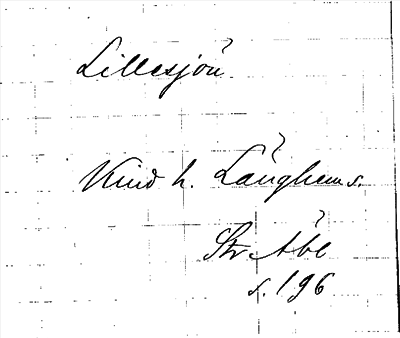 Lillesjön.
Kind h. Länghems.
Str Åbc
s. 196